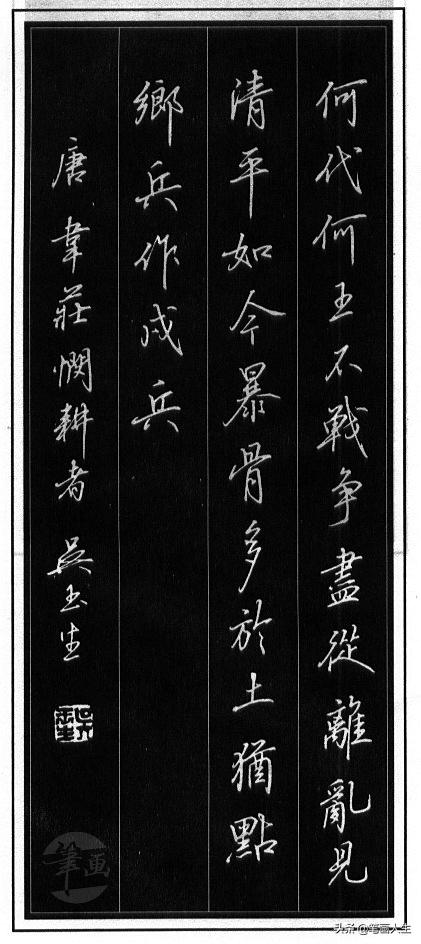 何代何王不戰争盡從離亂見
清平如今暴骨多於土猶點
鄉兵作戍兵
唐韋莊憫耕者 吳玉生
筆画
头条@笔画人生